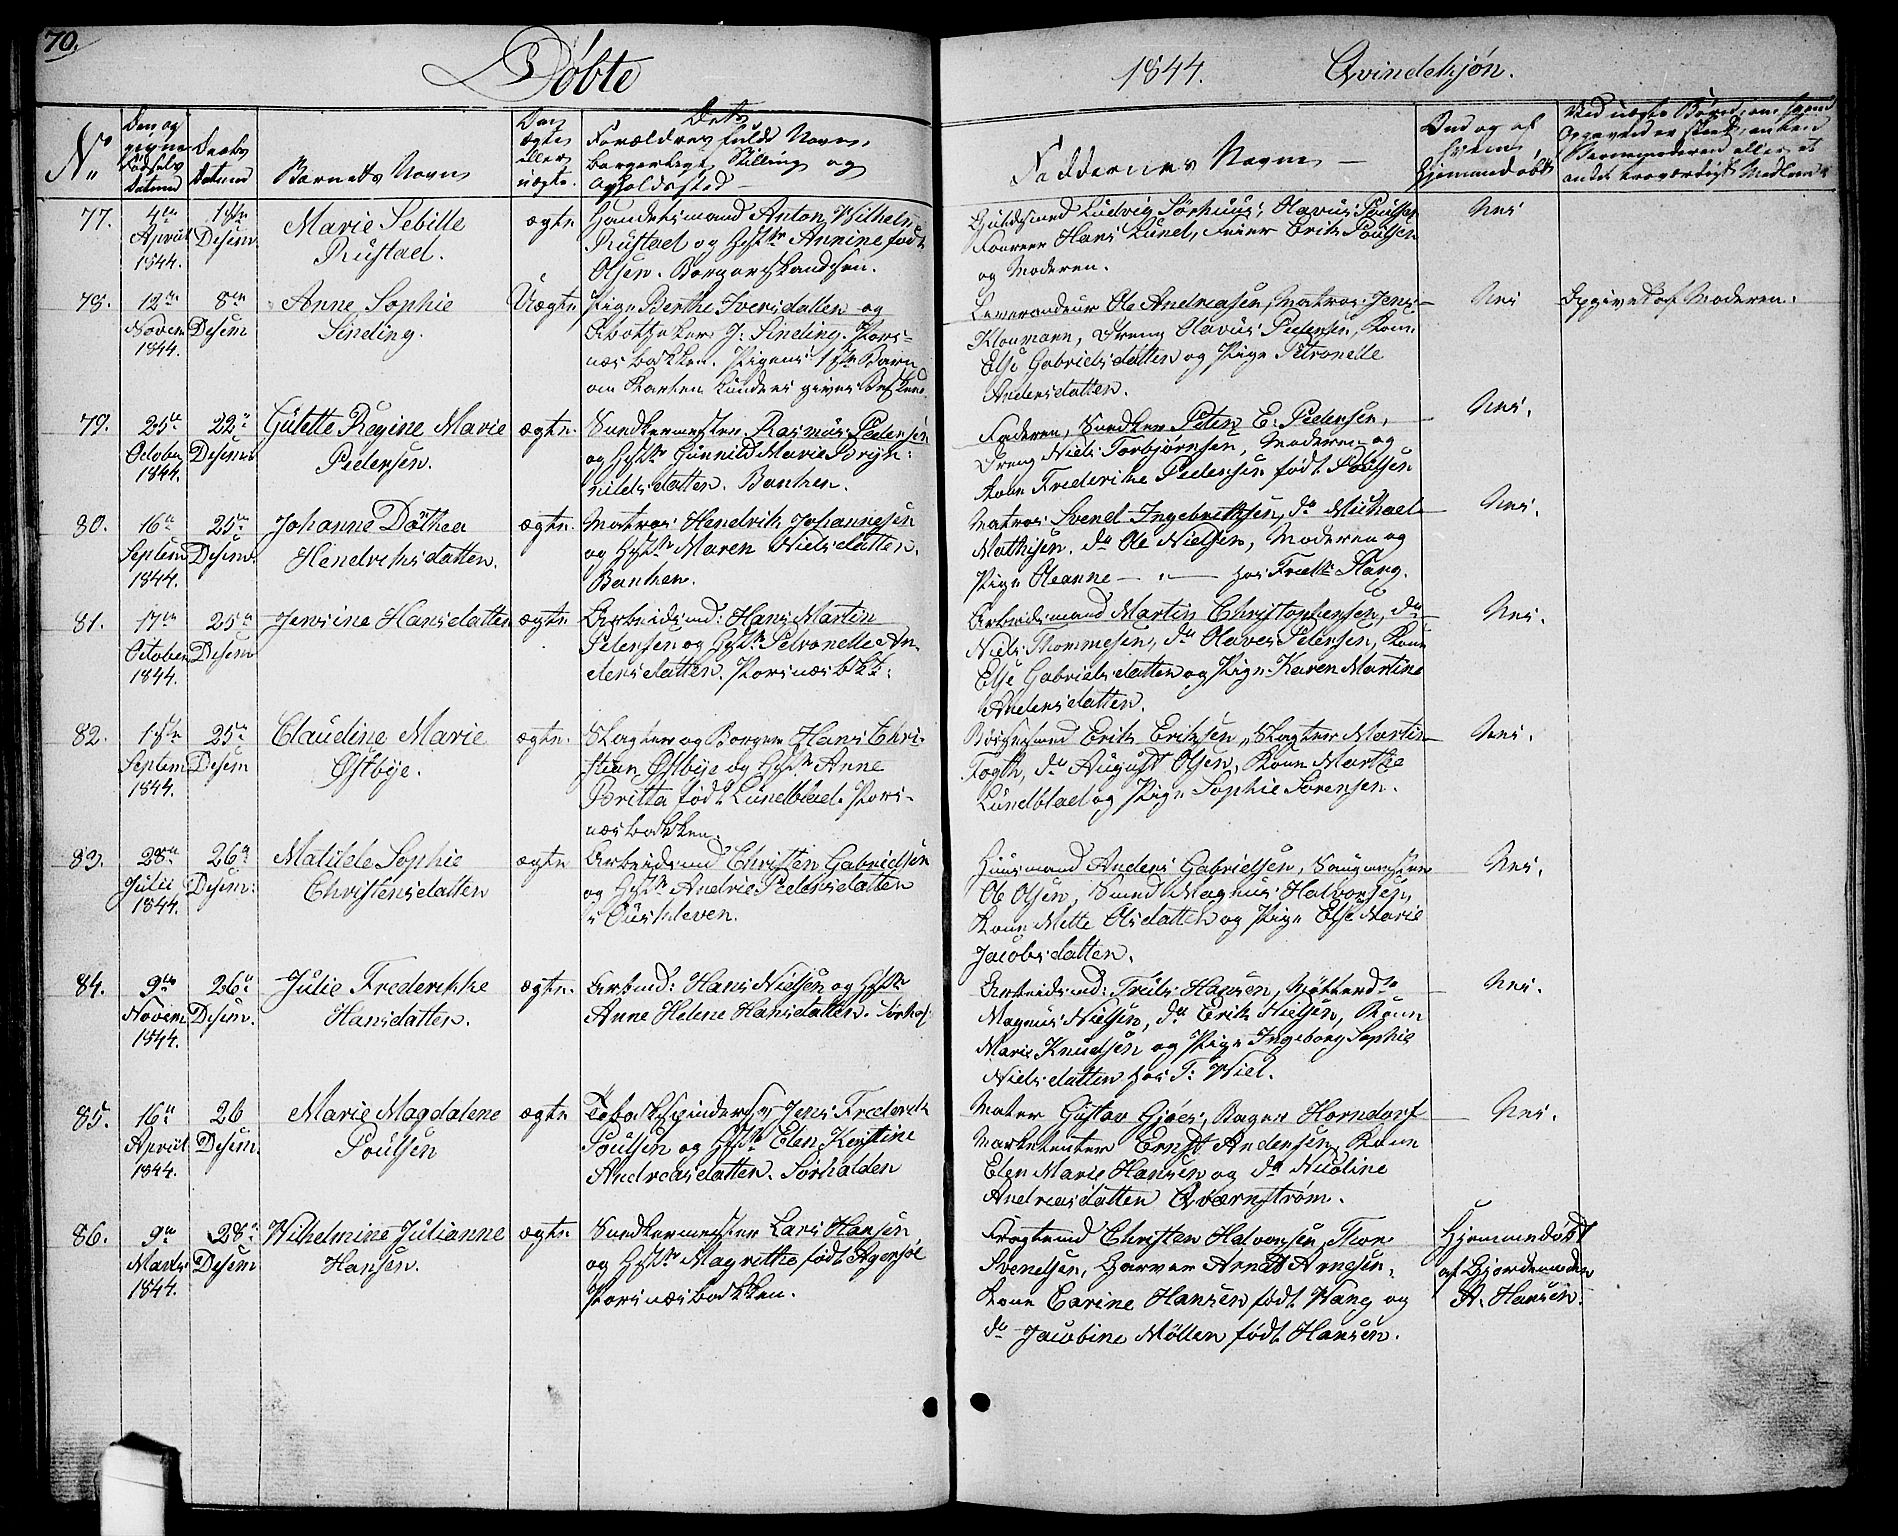 70.
Døbte
1844. Qvindekjøn.
No
Den og
Fødsels
Datum
Daabs
Datum
Barnets Navn
Den
ægte
eller
uægte.
Dets
Forældres fulde Navn,
borgerlige Stilling og
Opholdsstad
Faddernes Navne
hjemmedøbt
77.
4de
April
1844.
1ste
Desem.
Marie Sebille
Rustad.
ægte
Handelsmand Anton Wilhelm
Rustad og Hust: Annine født
Olsen.
Guldsmed Ludvig Sørhuus, Olavus Poulsen
Hans Lund, Feier Erik Poulsen
og Moderen.
Nei
78.
12te
Novem
1844.
8de
Desem
Anne Sophie
Sinding.
Uægte
Pige Berthe Iversdatter og
Apotheker J. Sinding. Pors-
næsbakken. Pigens 1ste Barn
Ole Andreasen, Matros Jens
Kloumann, Dreng Olavus Pedersen, Kone
Else Gabrielsdatter og Pige Petronelle
Andersdatter.
Nei
Opgivet af Moderen.
79.
25de
October
1844.
22de
Desem
Gulette Regine Marie
Pedersen.
ægte.
Snedkermester Rasmus Pedersen
og Hust: Gunnild Marie Bryn-
hildsdatter. Banken.
Faderen, Snedker Peter E. Pedersen,
Dreng Niels Torbjørnsen, Moderen og
Kone Frederikke Pedersen født Poulsen
Nei.
80.
16de
Septem
1844.
25de
Desem.
Johanne Dothea
Hendriksdatter.
ægte.
Matros Hendrik Johannesen
og Hust: Maren Nielsdatter.
Banken.
Matros Svend Ingebriktsen, do Michael
Mathisen, do Ole Nielsen, Moderen og
Pige Oleanne — " — hos Stang.
Nei.
81.
17de
October
1844.
25de
Desem
Jensine Hansdatter
ægte
Arbeidsmd: Hans Martin
Petersen og Hust: Petronelle An-
dersdatter. Porsnæsbkk:
Arbeidsmand Martin Christophersen, do
Niels Thommesen, do Olaves Petersen, Kone
Else Gabrielsdatter og Pige Karen Martine
Andersdatter.
Nei.
82.
1ste
Septem
1844.
25de
Desem
Claudine Marie
Østbye.
ægte.
Slagter og Borger Hans Chri-
stian Østbye og Hust: Anne
Britta født Lundblad. Pors-
næsbakken.
Erik Eriksen, Slagter Martin
Fogth, do August Olsen, Kone Marthe
Lundblad og Pige Sophie Sørensen.
Nei.
83.
28de
Julii
1844.
26de
Desem:
Matilde Sophie
Christensdatter
ægte
Arbeidsmd Christen Gabrielsen
og Hust: Andrie Pedersdatter
Huusmand Anders Gabrielsen,
Ole Olsen, Smed Magnus Halvorsen,
Kone Mette Olsdatter og Pige Else Marie
Jacobsdatter.
Nei.
84.
9de
Novem
1844.
26de
Desem.
Julie Frederikke
Hansdatter.
ægte.
Arbmd: Hans Nielsen og Hust:
Anne Helene Hansdatter. Sørhal:
Arbeidsmd: Truls Hansen,
Magnus Nielsen, do Erik Nielsen, Kone
Marie Knudsen og Pige Ingeborg Sophie
Nielsdatter hos T: Wiel.
Nei.
85.
16de
April
1844.
26
Desem.
Marie Magdalene
Poulsen
ægte
Tobakspindersv Jens Frederik
Poulsen og Hust: Elen Kerstine
Andreasdatter. Sørhalden
Maler Gustav Gjøes, Bager Horndorf
Marketenter Ernst Andersen, Kone
Elen Marie Hansen og do Nicoline
Andreasdatter Qværnstrøm.
Nei.
86.
9de
Marts
1844.
28de
Desem
Wilhelmine Julianne
Hansen.
ægte.
Snedkermester Lars Hansen
og Hust: Magrethe født
Porsnæsbakken.
Fragtemd Christen Halvorsen, Thor
Svendsen, Garver Arndt Arnesen,
Kone Carine Hansen født Wang og
do Jacobine Møller født Hansen.
Hjemmedøbt
af Gjordemoder
A. Hansen.